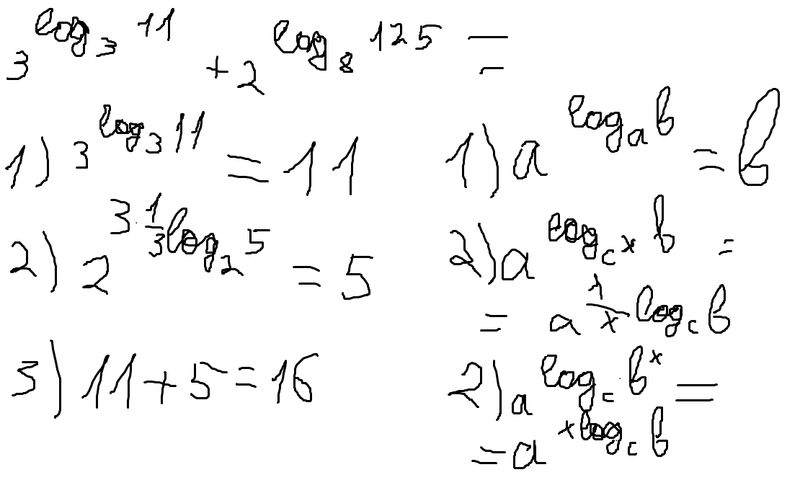 3^{log_3 11} + 2^{log_8 125} =
1) 3^{log_3 11} = 11
2) 2^{3·\frac{1}{3} log_2 5} = 5
3) 11 + 5 = 16
1) a^{log_a b} = b
2) a^{log_{c^x} b} =
= a^{\frac{1}{x} log_c b}
2) a^{log_c b^x} =
= a^{x log_c b}